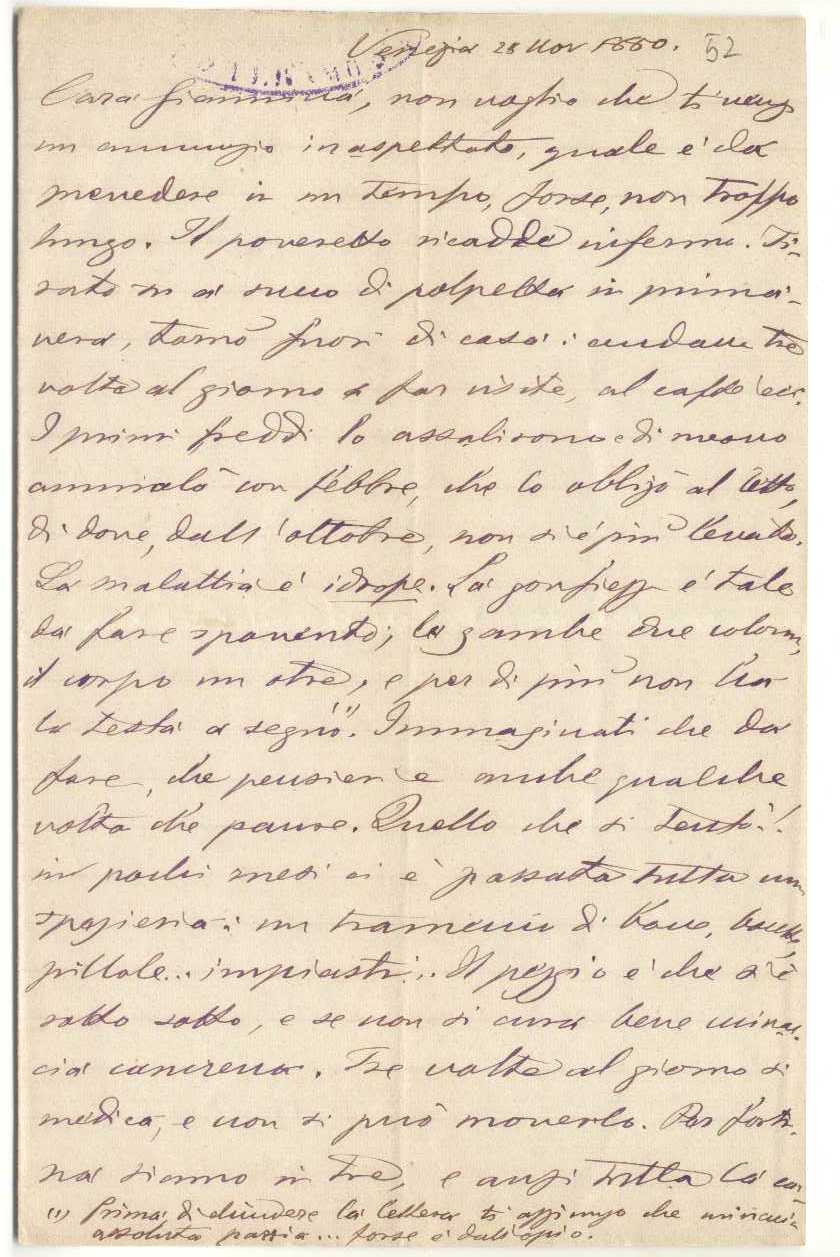 Venezia 28 Nov 1880. 52
Cara Giannina, non voglio che ti venga
un annunzio inaspettato, quale è da
prevedere in un tempo, forse, non troppo
lungo. Il poveretto ricadde infermo. Ti-
rato su a suco di polpetta in prima-
vera, tornò fuori di casa: andava tre
volte al giorno a far visite, al caffè ecc.
I primi freddi lo assalirono e di nuovo
ammalò con febbre, che lo obbligò al letto,
di dove, dall'ottobre, non si è più levato.
La malattia è idrope. La gonfiezza è tale
da fare spavento; le gambe due colonne,
il corpo un otre, e per di più non ha
la testa a segno (1). Immaginati che da
fare, che pensieri e anche qualche
volta che paure. Quello che si tentò!
in pochi mesi ci è passata tutta una
spezieria: un tramenio di
pillole... impiastri... Il peggio è che s'è
rotto sotto, e se non si cura bene minac-
cia cancrena. Tre volte al giorno si
medica, e non si può moverlo. Per fortu-
na siamo in tre, e anzi tutta la ca-
(1) Prima di chiudere la lettera ti aggiungo che minaccia
assoluta pazzia... forse è dall'opio.